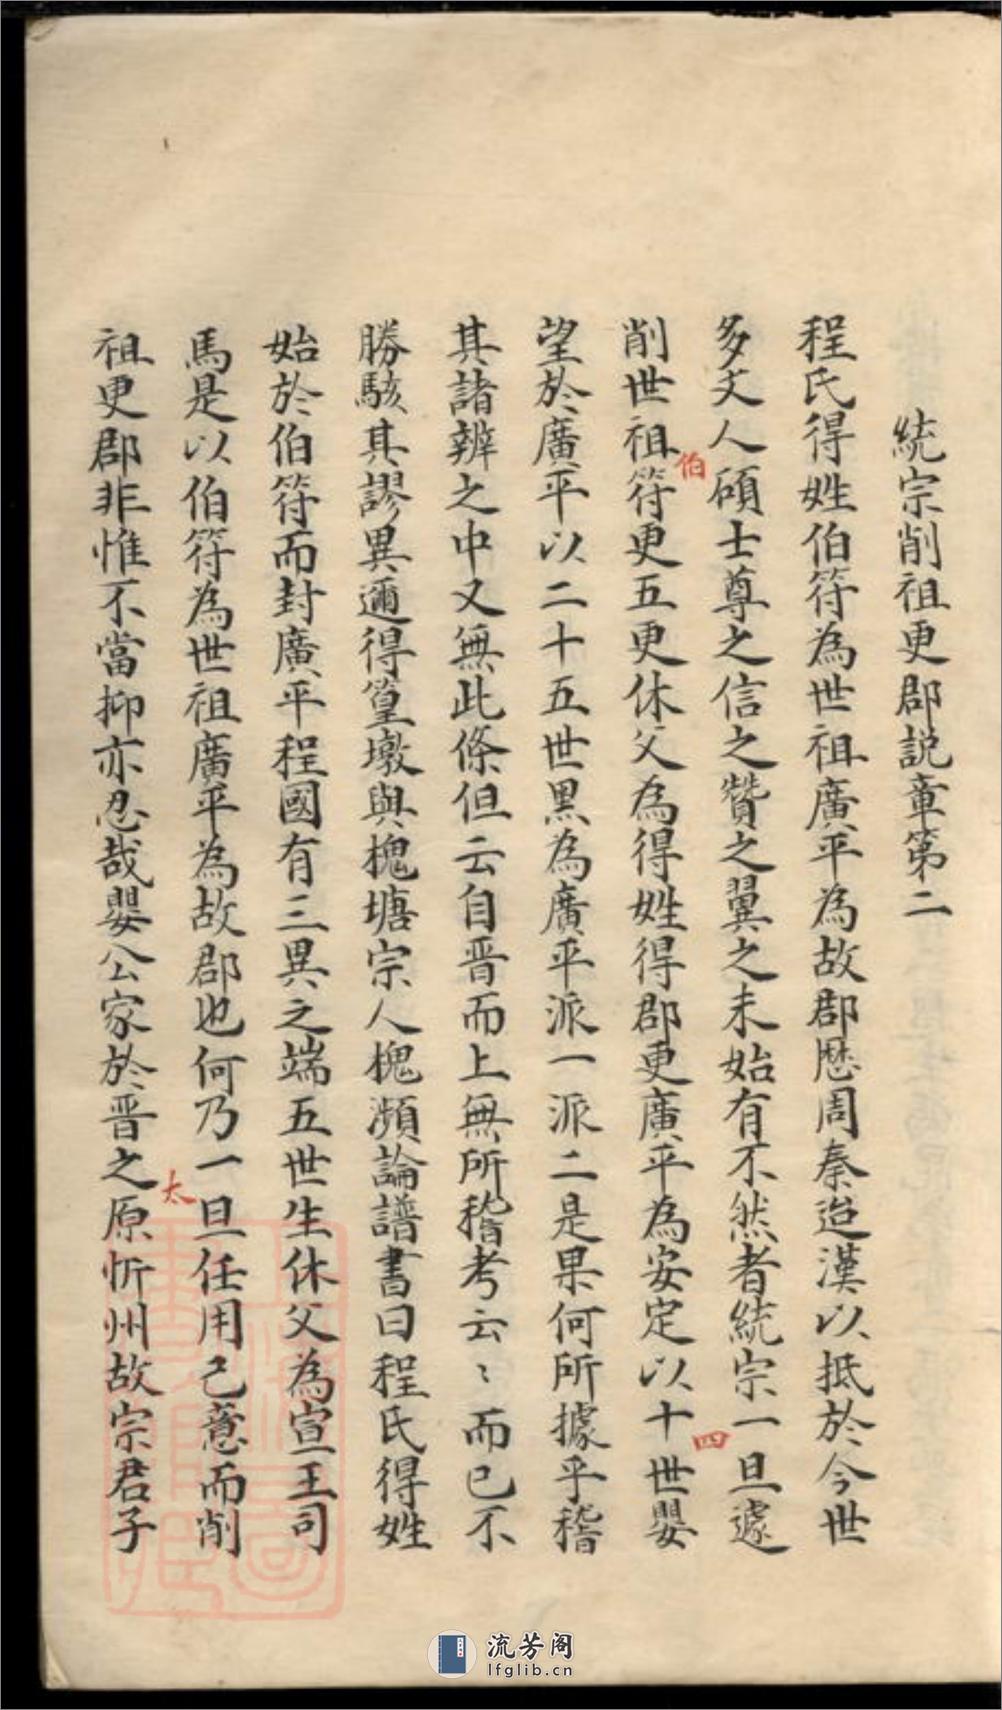 統宗削祖更郡説章第二
程氏得姓伯符為世祖廣平為故郡歴周秦迨漢以抵於今世
多丈人碩士尊之信之贊之翼之未始有不然者統宗一旦遽
削世祖伯符更五更休父為得姓得郡更廣平為安定以十四世嬰
望於廣平以二十五世黑為廣平派一派二是果何所據乎稽
其諸辨之中又無此條但云自晋而上無所稽考云〻而已不
勝駭其謬異邇得篁墩與槐塘宗人槐瀕論譜書曰程氏得姓
始於伯符而封廣平程國有三異之端五世生休父為宣王司
馬是以伯符為世祖廣平為故郡也何乃一旦任用己意而削
祖更郡非惟不當抑亦忍哉嬰公家於晋之太原忻州故宗君子
流芳阁
lfglib.cn